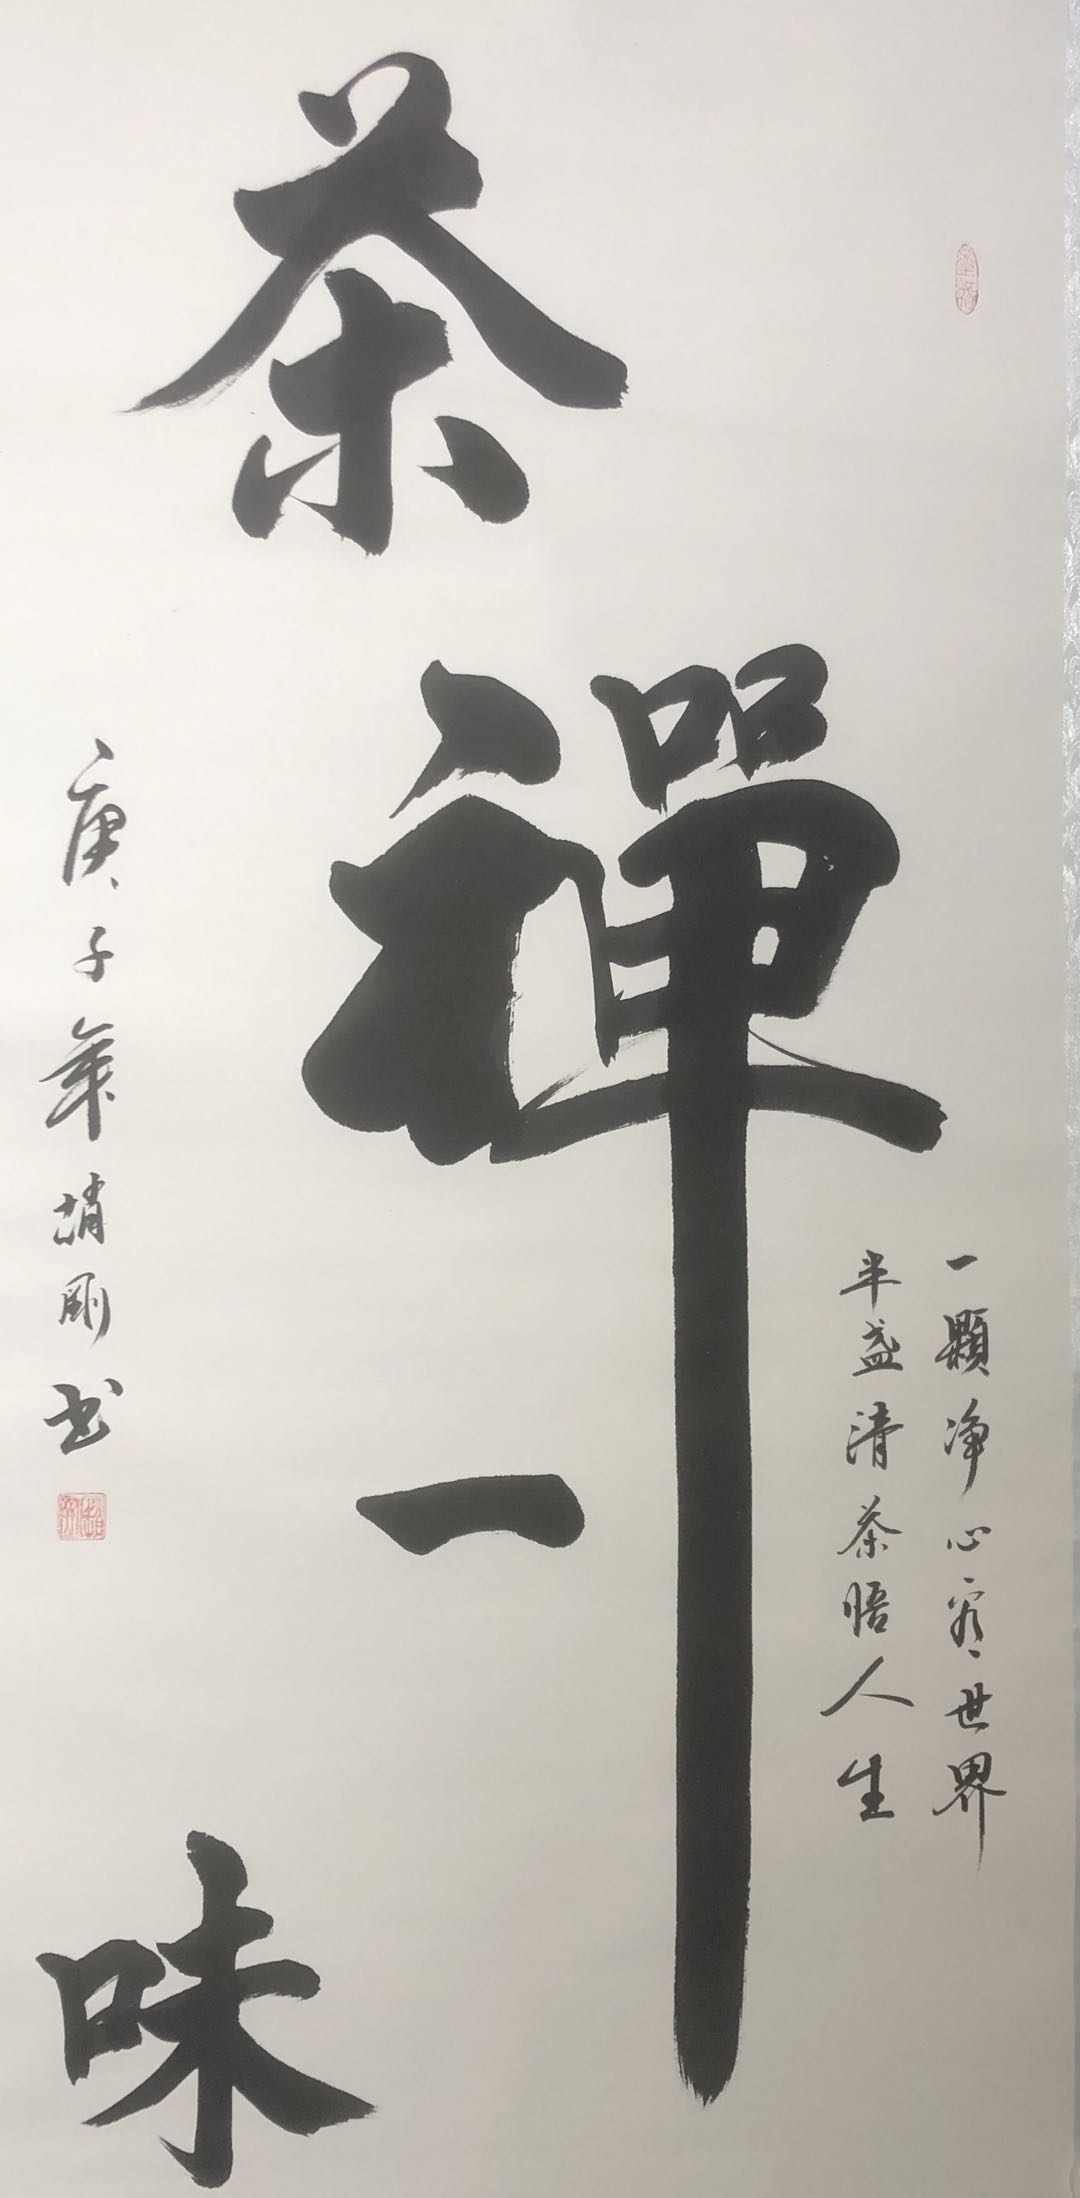 茶禪一味
一顆净心容世界
半盏清茶悟人生
庚子年靖剛书